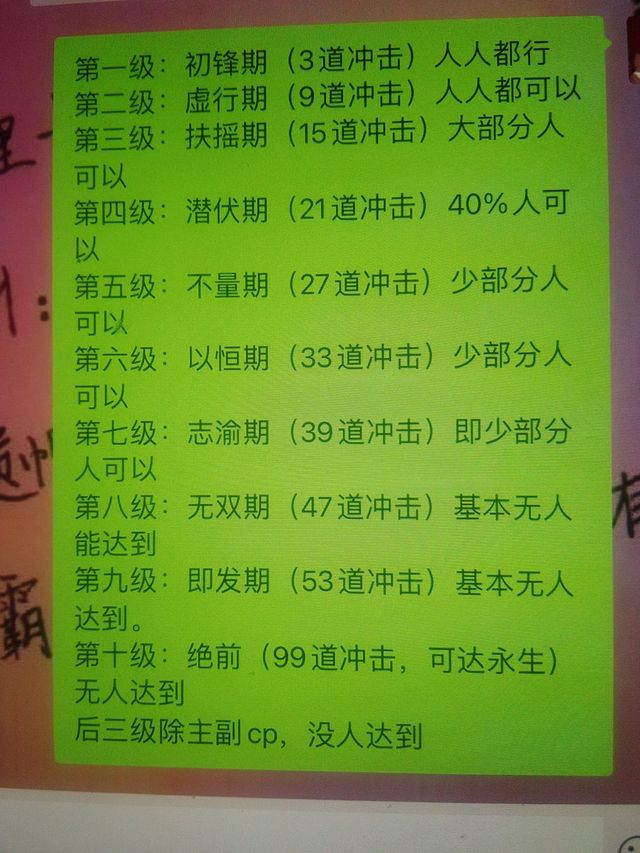 第一级：初锋期（3道冲击）人人都行
第二级：虚行期（9道冲击）人人都可以
第三级：扶摇期（15道冲击）大部分人
可以
第四级：潜伏期（21道冲击）40%人可
以
第五级：不量期（27道冲击）少部分人
可以
第六级：以恒期（33道冲击）少部分人
可以
第七级：志渝期（39道冲击）即少部分
人可以
第八级：无双期（47道冲击）基本无人
能达到
第九级：即发期（53道冲击）基本无人
达到。
第十级：绝前（99道冲击，可达永生）
无人达到
后三级除主副cp，没人达到
霸